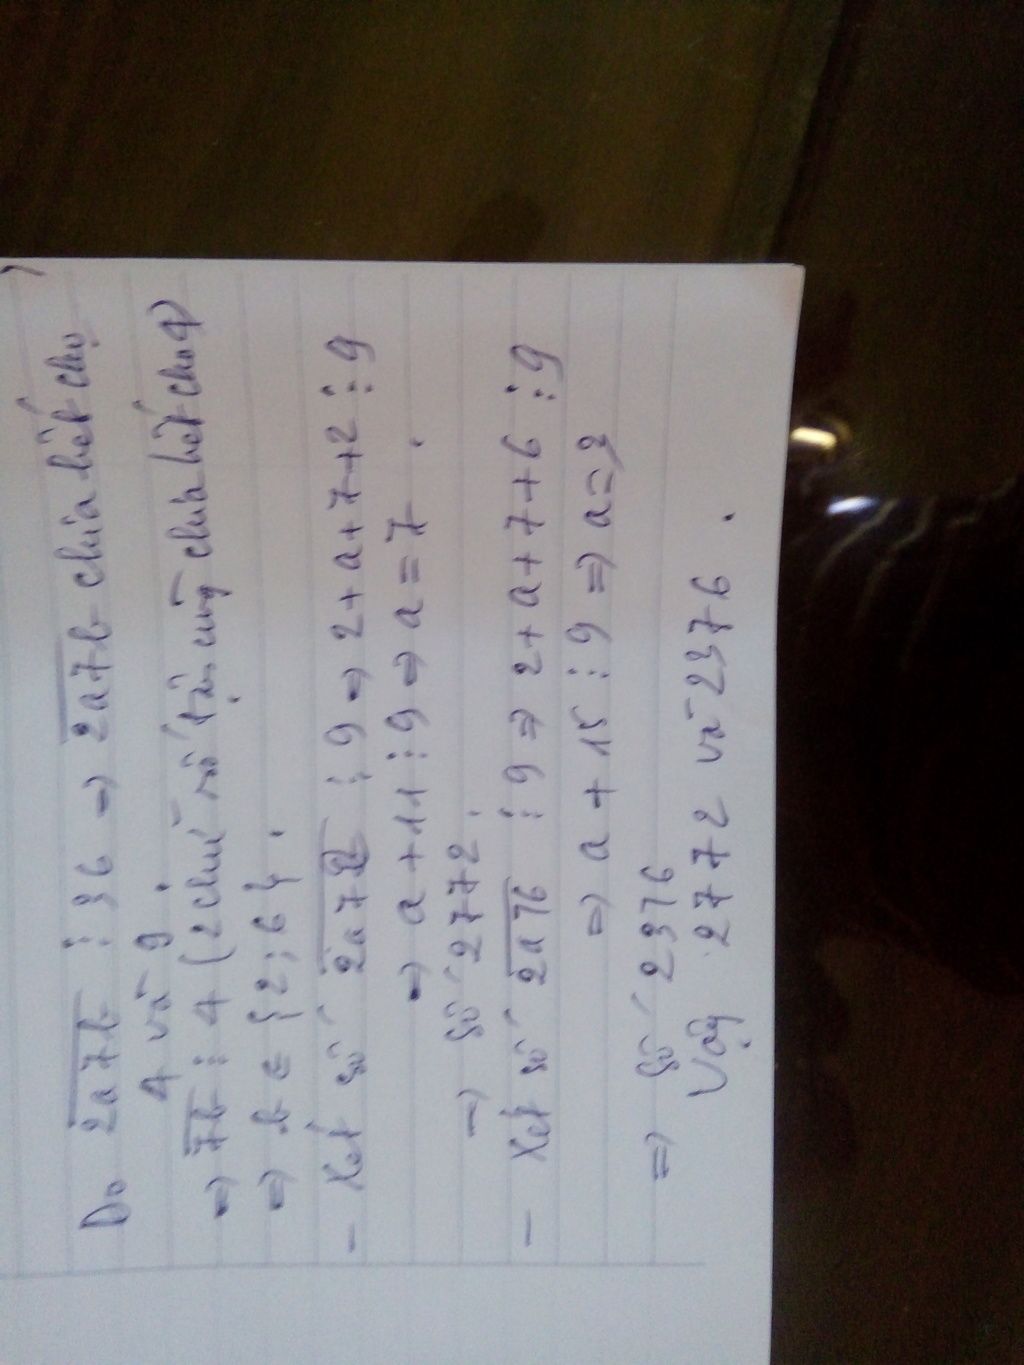 Do 2a7b ⋮ 36 => 2a7b chia hết cho
4 và 9.
=> 7b ⋮ 4 (2 chữ số tận cùng chia hết cho 4)
=> b ∈ {2; 6}.
- Xét số 2a72 ⋮ 9 => 2 + a + 7 + 2 ⋮ 9
=> a + 11 ⋮ 9 => a = 7.
=> số 2772.
- Xét số 2a76 ⋮ 9 => 2 + a + 7 + 6 ⋮ 9
=> a + 15 ⋮ 9 => a = 3
=> số 2376
Vậy 2772 và 2376.